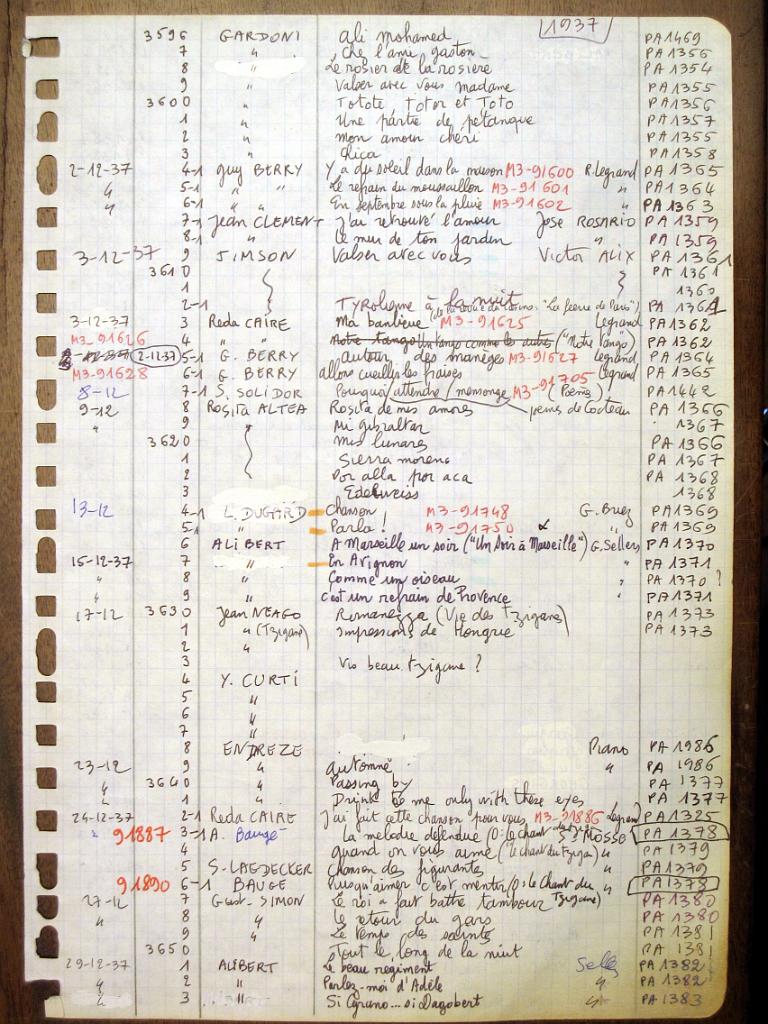 1937
3596 GARDONI Ali Mohamed PA1469
7 " Che l'ami gaston PA1356
8 " Le rosier de la rosiere PA1354
9 " Valser avec vous madame PA1355
3600 " Totote, Totor et Toto PA1356
1 " Une partie de petanque PA1357
2 " Mon amour cheri PA1355
3 " Chica PA1358
2-12-37 4-1 Guy BERRY Y a du soleil dans la maison M3-91600 R.Legrand PA1365
" 5-1 " " Le refrain du moussaillon M3-91601 " PA1364
" 6-1 " " En septembre sous la pluie M3-91602 " PA1363
7-1 Jean CLEMENT J'ai retrouvé l'amour Jose ROSARIO PA1359
8-1 " Le mur de ton jardin " PA1359
3-12-37 9 SIMSON Valser avec vous Victor ALIX PA1361
3610 PA1361
1 1360
2-1 Tyrolienne à la nuit "La feerie de Paris") PA 1361
3-12-37 3 Reda CAIRE Ma banlieue M3-91625 Legrand PA1362
M3-91626 4 " " Notre tango un tango comme les autres ("Notre tango) " PA1362
2-12-37 5-1 G. BERRY autour des manèges M3-91627 Legrand PA1354
M3-91628 6-1 G. BERRY allons cueillir les fraises Legrand PA1365
8-12 7-1 S. SOLIDOR Pourquoi attendre / mensonge M3-91705 (Poemes) PA1442
9-12 8 Rosita ALTEA Rosita de mis amores poemes de Cocteau PA1366
" 9 " Mi gibraltar 1367
3620 Mis lunares PA1366
1 Sierra morena PA1367
2 Por alla por aca PA1368
3 Edelweiss 1368
13-12 4-1 L. DUGARD Chanson M3-91748 G. Briez PA1369
5-1 " Parla! M3-91750 " PA1369
6 ALIBERT A Marseille un soir ("Un soir à Marseille") G.Sellers PA1370
15-12-37 7 " En Avignon PA1371
" 8 " Comme un oiseau " PA1370?
" 9 " c'est un refrain de Provence PA1371
17-12 3630 Jean NEAGO Romanezza (Vie des Tzigane) PA1373
1 " (Tzigane) Impressions de Hongrie PA1373
2 "
3 Vis beau tzigane ?
4 Y. CURTI
5 "
6 "
7 "
8 ENDREZE Piano PA1986
23-12 9 " Automne " PA1986
" 3640 " Passing by PA1377
" 1 " Drink to me only with these eyes PA1377
24-12-37 2-1 Reda CAIRE J'ai fait cette chanson pour vous M3-91886 Legrand PA1325
" 91887 3-1 A. Baugé La melodie defendue (O: le chant du tzigane) MOSSO PA1378
4 " quand on vous aime ("le chant du tzigan) " PA1379
5 S. LAEDECKER Chanson des figurantes " PA1379
91890 6-1 BAUGE Puisqu'aimer c'est mentir (O: le Chant du Tzigane) " PA1378
27-12 7 Gust. SIMON Le roi a fait battre tambour PA1380
" 8 " le retour du gars PA1380
9 " Le temps des saints PA1381
3650 " Tout le long de la nuit PA1381
29-12-37 1 ALIBERT Le beau regiment Sellers PA1382
" 2 " Parlez-moi d'Adèle " PA1382
" 3 " Si Cyrano... si Dagobert " PA1383